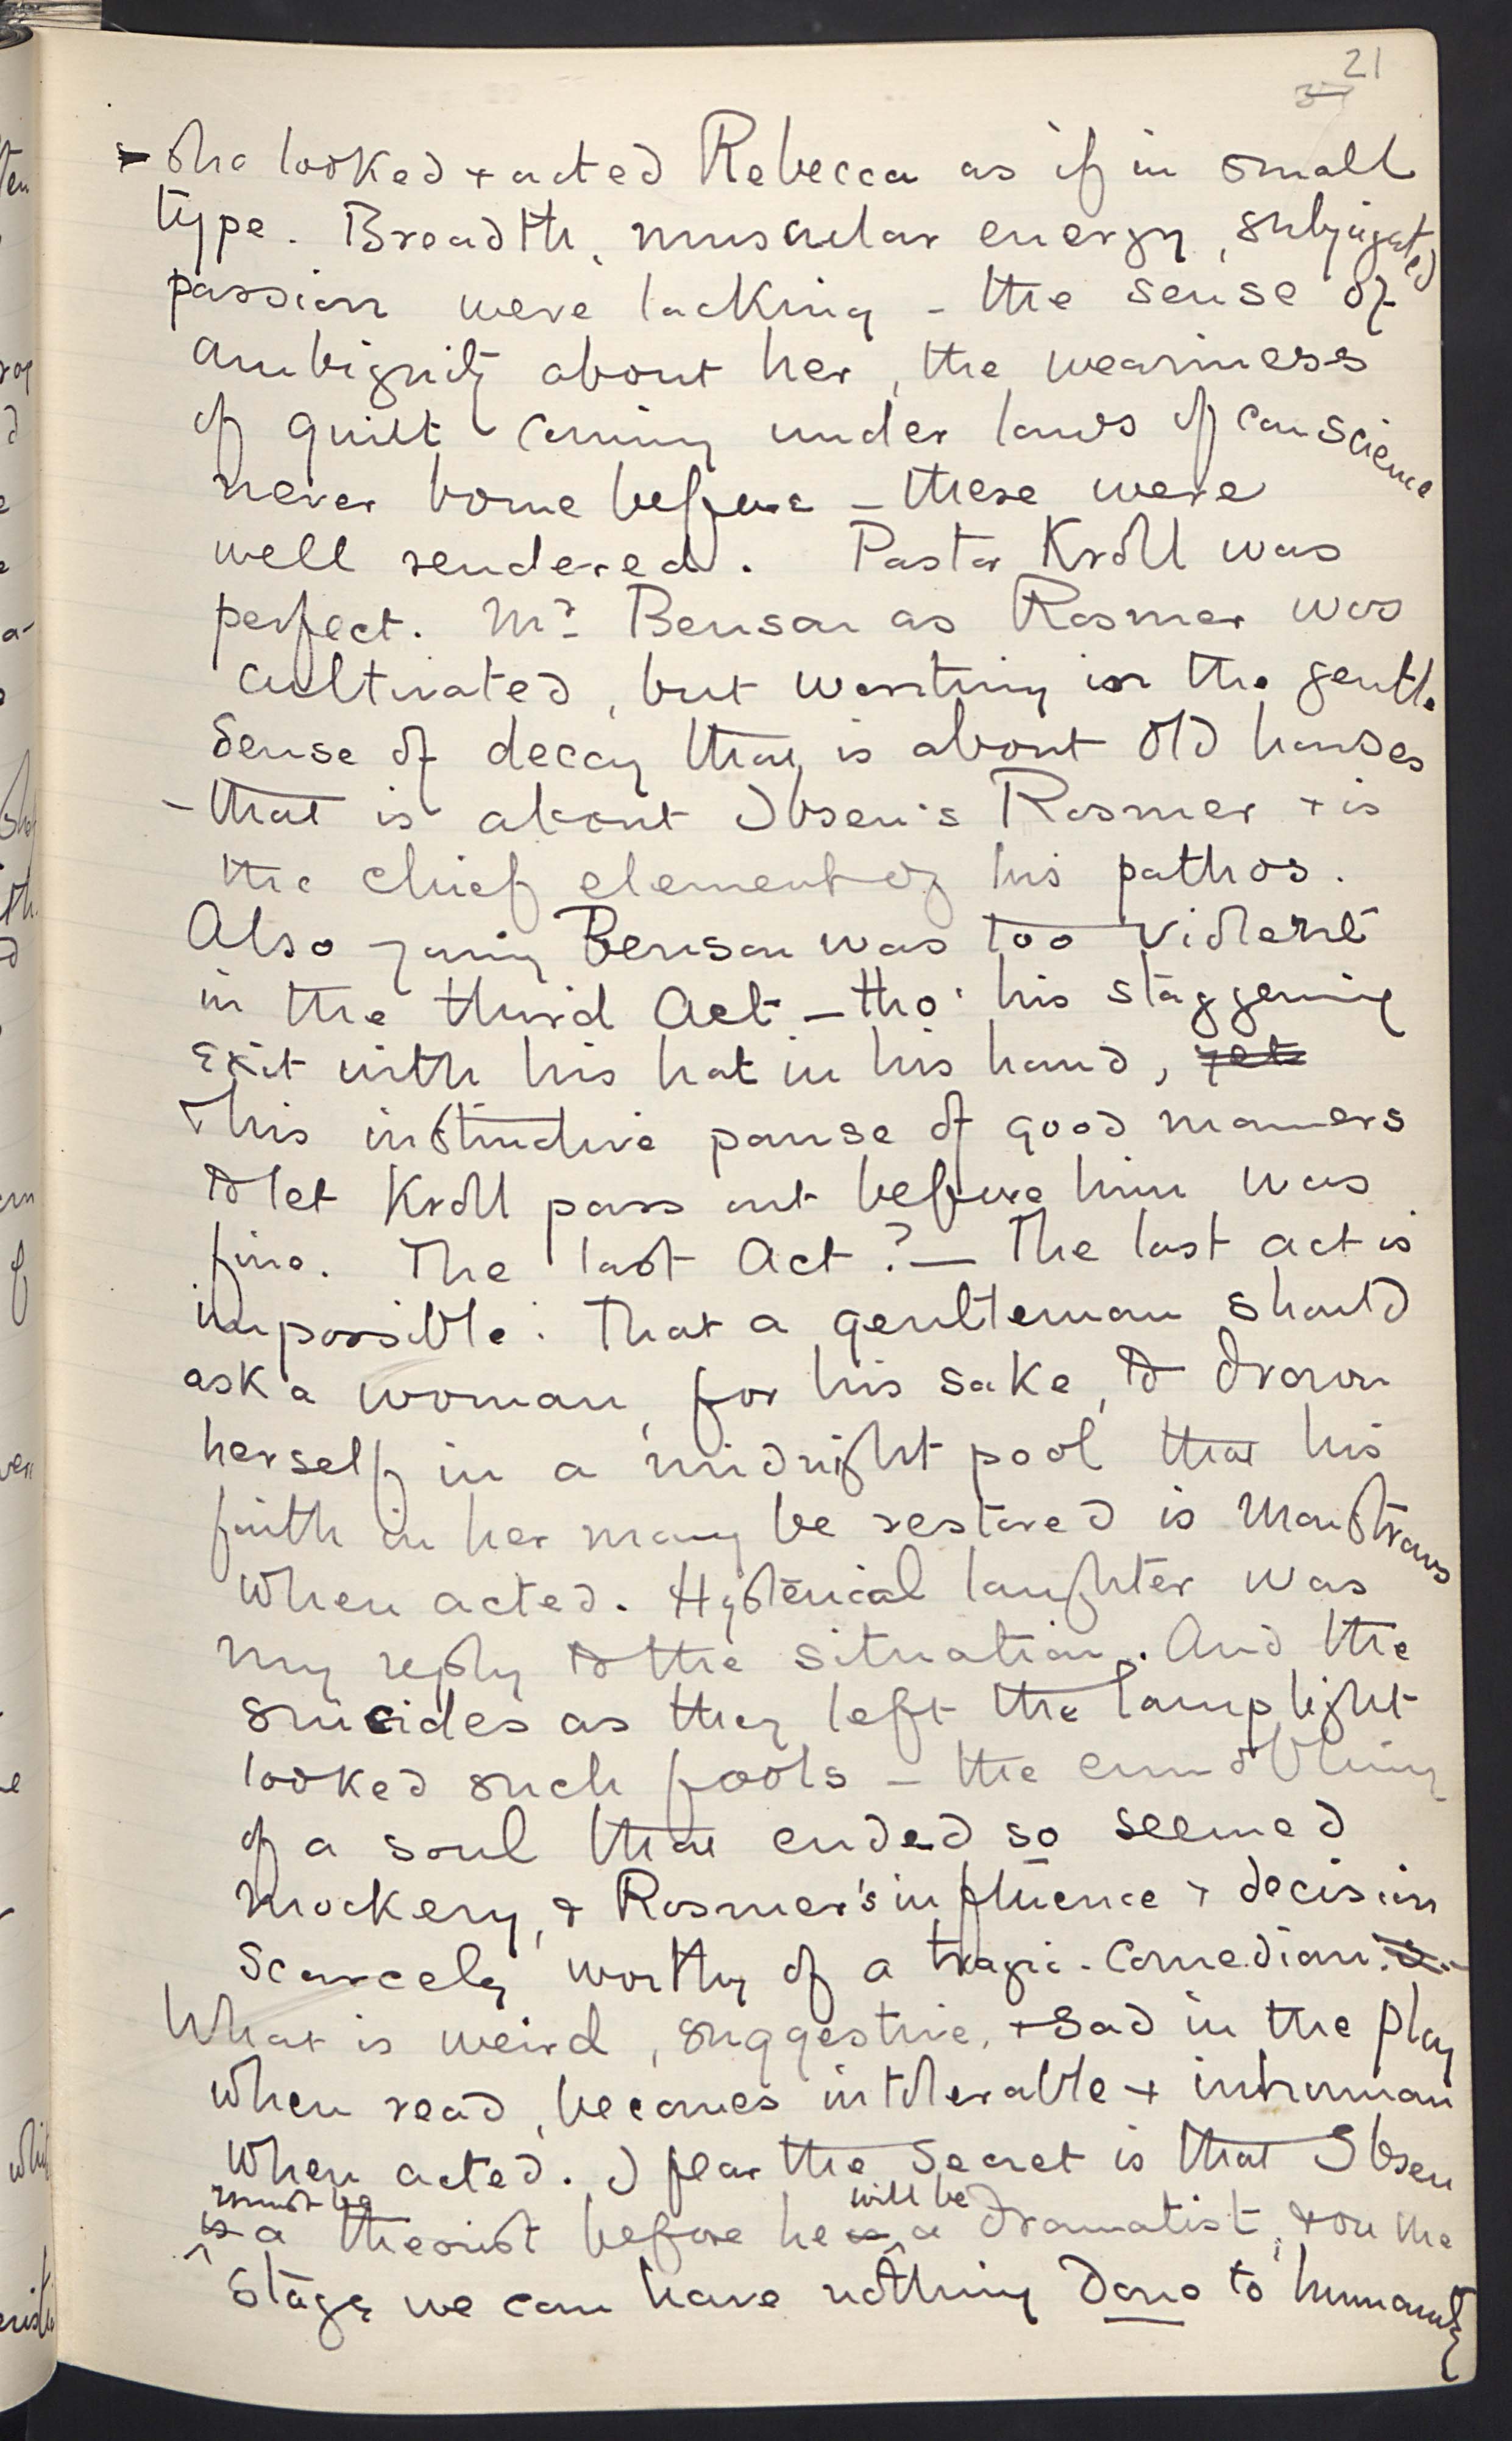 21
- she looked + acted Rebecca as if in small
type. Breadth, muscular energy, subjugated
passion were lacking - the sense of
ambiguity about her, the weariness
of guilt coming under laws of conscience
never borne before - these were
well rendered. Pastor Kroll was
perfect. Mr Benson as Rosmer was
cultivated, but wanting in the gentle
sense of decay that is about old houses
- that is about Ibsen's Rosmer + is
the chief element of his pathos.
Also young Benson was too violent
in the third Act - tho' his staggering
exit with his hat in his hand, yet
his instinctive pause of good manners
to let Kroll pass out before him was
fine. The last Act? - The last act is
impossible: That a gentleman should
ask a woman, for his sake, to drown
herself in a midnight pool that his
faith in her may be restored is monstrous
when acted. Hysterical laughter was
my reply to the situation. And the
suicides as they left the lamplight
looked such fools - the ennobling
of a soul that ended so seemed
mockery, + Rosmer's influence + decision
scarcely worthy of a tragic-comedian.
What is weird, suggestive, + sad in the play
when read, becomes intolerable + inhuman
when acted. I fear the secret is that Ibsen
must be will be
is a theorist before he is a dramatist, + on the
stage we can have nothing done to humanity